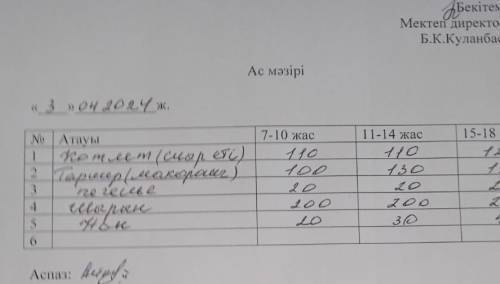 Бекітем
Мектеп директо
Б.К.Куланбае
Ас мәзірі
« 3 » 04 2024 ж.
№ Атауы 7-10 жас 11-14 жас 15-18
1 Котлет (сиыр еті) 110 110 12
2 Гарнир (макорант) 100 130 1
3 печенье 20 20 2
4 Шырын 200 200 2
5 Нан 20 30
6
Аспаз: